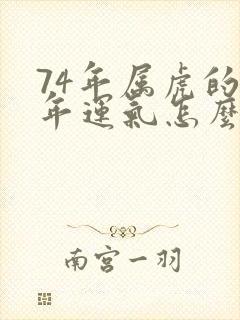 74年属虎的
年運氣怎麼
南宫一羽